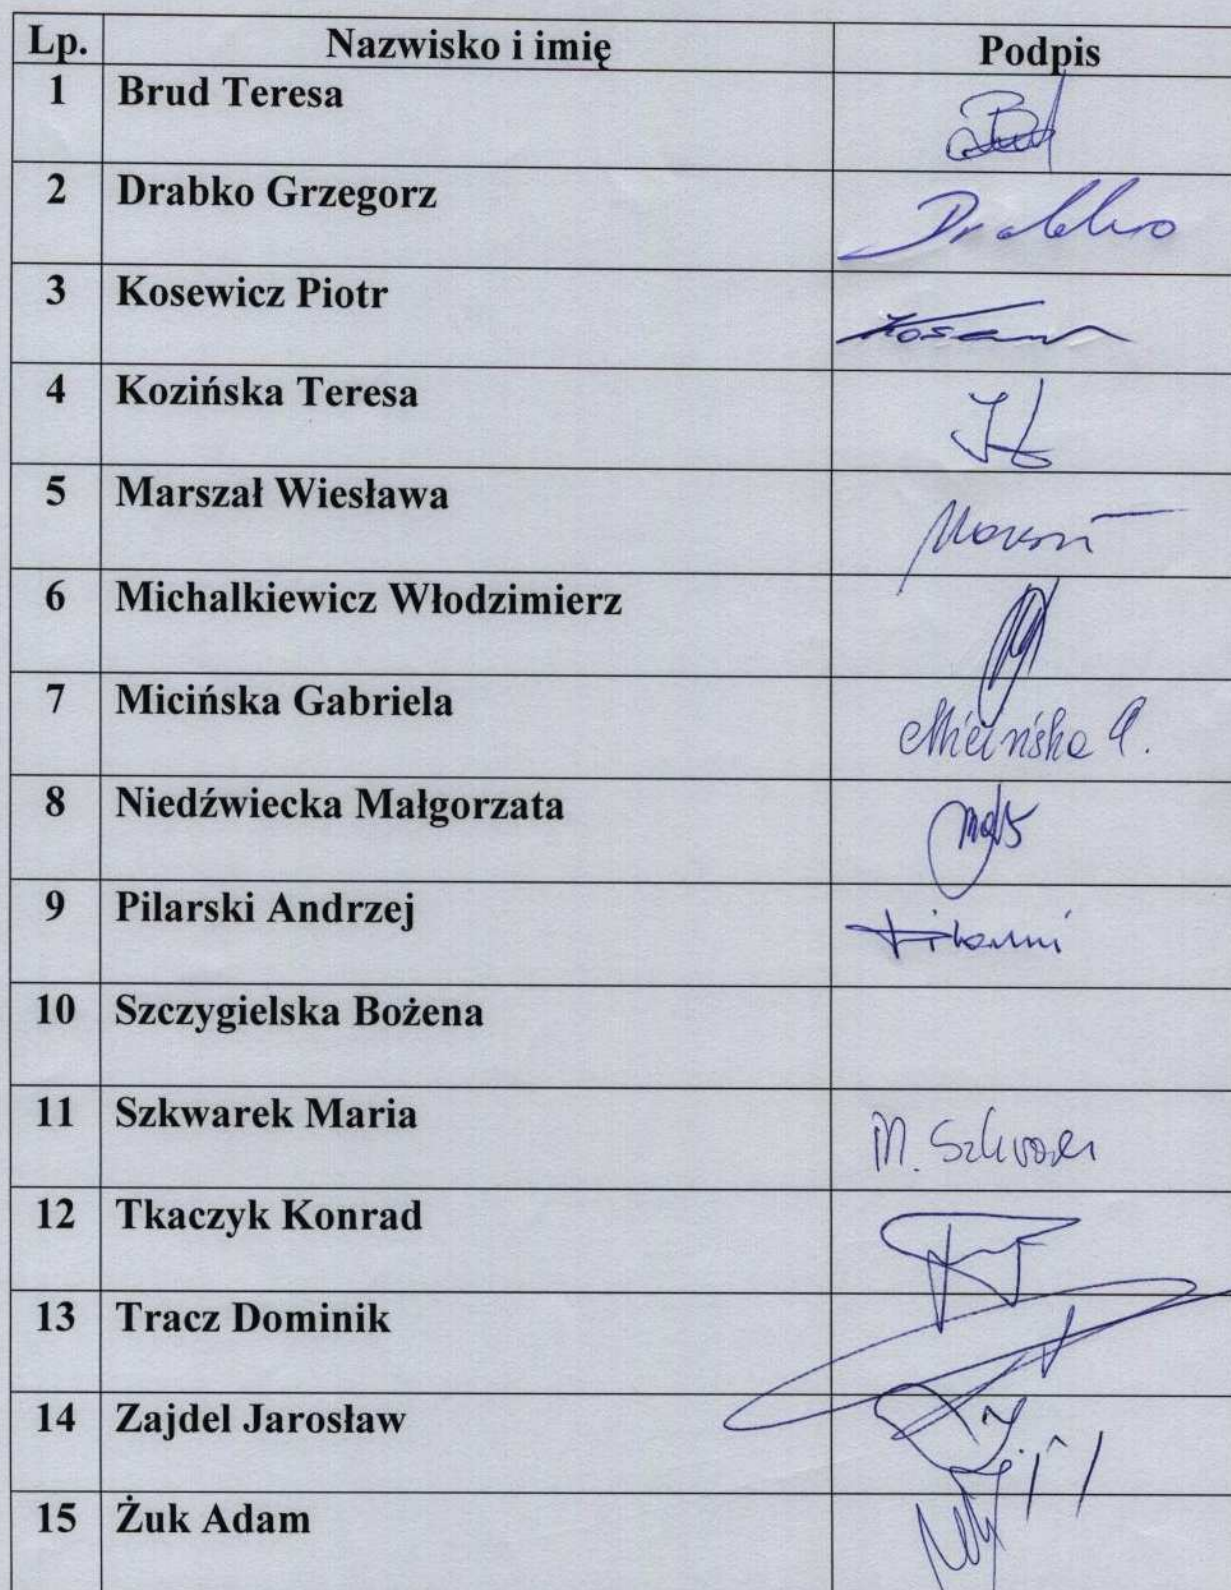 Lp. Nazwisko i imię Podpis
1 Brud Teresa
2 Drabko Grzegorz Drabko
3 Kosewicz Piotr
4 Kozińska Teresa
5 Marszał Wiesława
6 Michalkiewicz Włodzimierz
7 Micińska Gabriela Micińska G.
8 Niedźwiecka Małgorzata
9 Pilarski Andrzej
10 Szczygielska Bożena
11 Szkwarek Maria M. Szkwarek
12 Tkaczyk Konrad
13 Tracz Dominik
14 Zajdel Jarosław
15 Żuk Adam